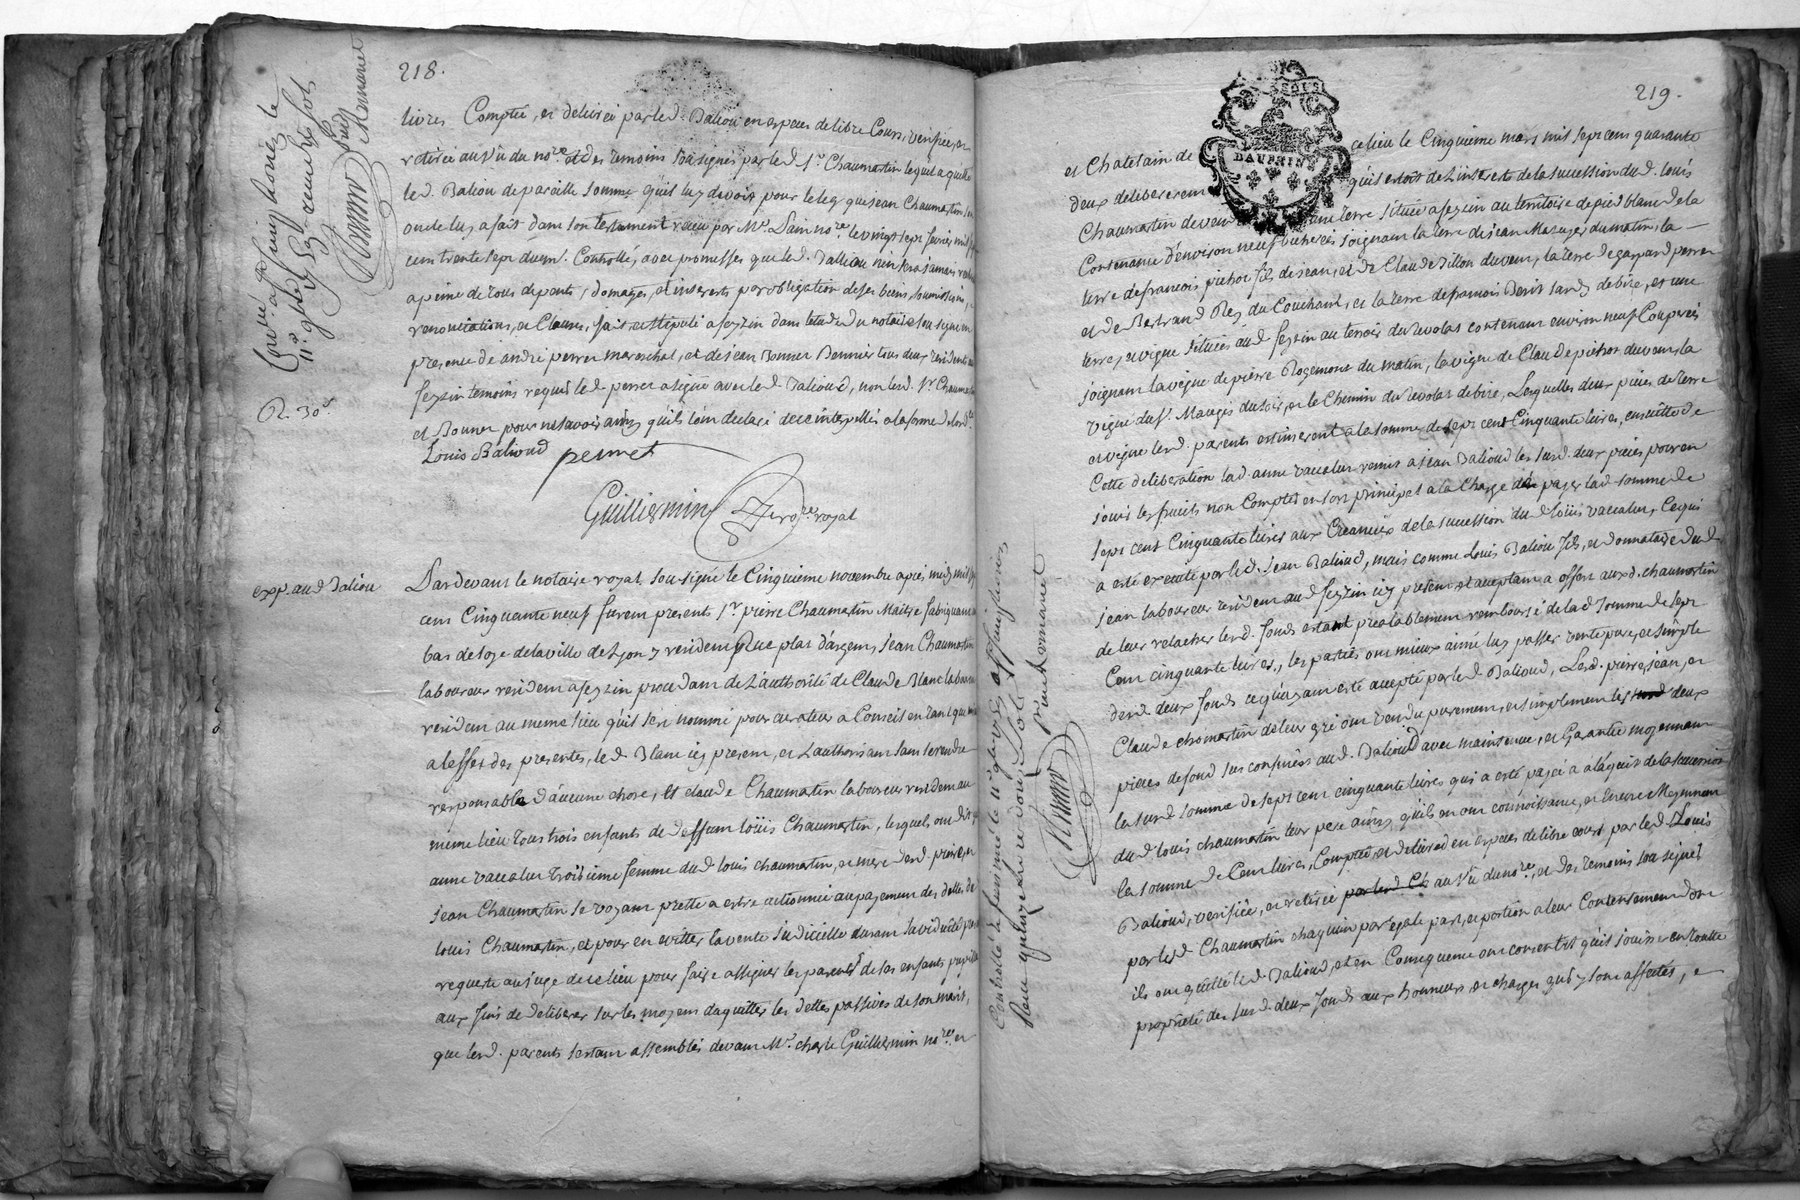 218.
livres Compté, et delivrée par led. Baliou en especes de libre Cours, verifiée, et
retirée au Vu du nore. et des temoins soussignés par led. Sr. Chaumartin lequel a quitté
led. Baliou de pareille somme qu'il luy devoit pour le leg que jean Chaumartin son
oncle luy a fait dans son testament receu par Me. Lain nore. le vingt sept fevrier mil sept
cens trente sept duem. Controllé, avec promesses que led. Balliou n'en sera jamais
a peine de tous depents, domages, et interests par obligation de ses biens, soumissions,
renonciations, et Clauses, fait, et stipulé a feyzin dans letude du notaire sousigné en
presence de andré perret mareschal, et de jean Bonnet Bennier tous deux residents aud.
feyzin temoins requis led. perret a signé avec led. Balioud, non led. Sr Chaumartin
et Bonnet pour ne savoir ainsy qu'ils l'ont declaré de ce interpellés a la forme de lordce
Louis Balioud perret
Guilliermin nore royal
R. 30s.
exp. aud Baliou
Pardevant le notaire royal sousigné le Cinquieme novembre apres midy mil sept
cens Cinquante neuf furent presents Sr pierre Chaumartin Maitre fabriquant en
bas de soye de la ville de Lyon y resident Rue plat d'argent, jean Chaumartin
laboureur resident a feyzin procedant de L'authorité de Claude Blanc laboureur
resident au meme lieu qu'il s'est nommé pour curateur a Conseil en tant que
a l'effet des presentes, led. Blanc icy present, et L'authorisant sans se rendre
responsable d'aucune chose, Et claude Chaumartin laboureur resident au
meme lieu tous trois enfants de deffunt Loüis Chaumartin, lesquels ont dit que
anne vaccalut troisieme femme dud louis chaumartin, et mere desd. pierre, et
jean Chaumartin se voyant prette a estre actionnée au payement des dettes de
louis Chaumartin, et pour en eviter la vente judicielle durant sa viduité
requeste au juge de ce lieu pour faire assigner les parents de ses enfants pupilles
aux fins de deliberer sur les moyens daquitter les dettes passives de son mary,
que lesd. parents s'estant assemblés devant Me. charle Guilliermin nore. et
219.
et Chatelain de ce lieu le Cinquieme mars mil sept cens quarante
DAUPHINE
deux delibererent qu'il estoit de L'interest de la succession dud. loüis
Chaumartin de vendre une terre située a feyzin au territoire de pied blanc de la
Contenance d'environ neuf bicherés joignant la terre de jean Mauges du matin, la
terre de francois pichot fils de jean, et de Claude Billon du vent, la terre de gaspard perret
et de Bertrand Rey du Couchant, et la terre de francois Benit sardy de bize, et une
terre, et vigne situées aud feyzin au terroir du revolat contenant environ neuf Couperés
joignant la vigne de pierre Rogemont du matin, la vigne de Claude pichot du vent, la
vigne du Sr. Maugés du soir, et le Chemin du Revolat de bize, Lesquelles deux pieces de terre
et vigne lesd. parents estimerent a la somme de sept cens Cinquante livres, ensuitte de
Cette deliberation lad. anne vaccalut remit a jean Balioud les susd. deux pieces pour en
jouir les fruits non Comptés en sort principal a la Charge de payer lad. somme de
sept cens Cinquante livres aux Creanciers de la succession dud loüis vaccalut, Ce qui
a esté executé par led. jean Balioud, mais comme Louis Baliou fils, et donnataire dud
jean laboureur resident aud feyzin icy present et acceptant a offert auxd. chaumartin
de leur relacher lesd. fonds estant prealablement remboursé de lad somme de sept
Cens cinquante livres, les parties ont mieux aimé luy passer vente pure, et simple
desd deux fonds ce qu'ayant esté accepté par led Balioud, Lesd. pierre, jean, et
Claude chomartin de leur gré ont vendu purement, et simplement les susd deux
pieces de fond sus confinées aud. Balioud avec maintenue, et Garantie moyennant
la susd somme de sept cens cinquante livres qui a esté payée a alaquit de la succession
dud louis chaumartin leur pere ainsy qu'ils en ont connoissance, et Encore Moyennant
la somme de Cent livres, Comptée, et delivré en especes de libre cours par led. Louis
Balioud, verifiée, et retirée par lesd Ch au Vu du nore, et des temoins sousignés
par lesd Chaumartin chaquun par egale part, et portion a leur Contentement dont
ils ont quitté led Balioud, et en Consequence ont consenti qu'il jouisse en toutte
proprieté des susd. deux fonds aux honneurs et charges qui y sont affectés, et